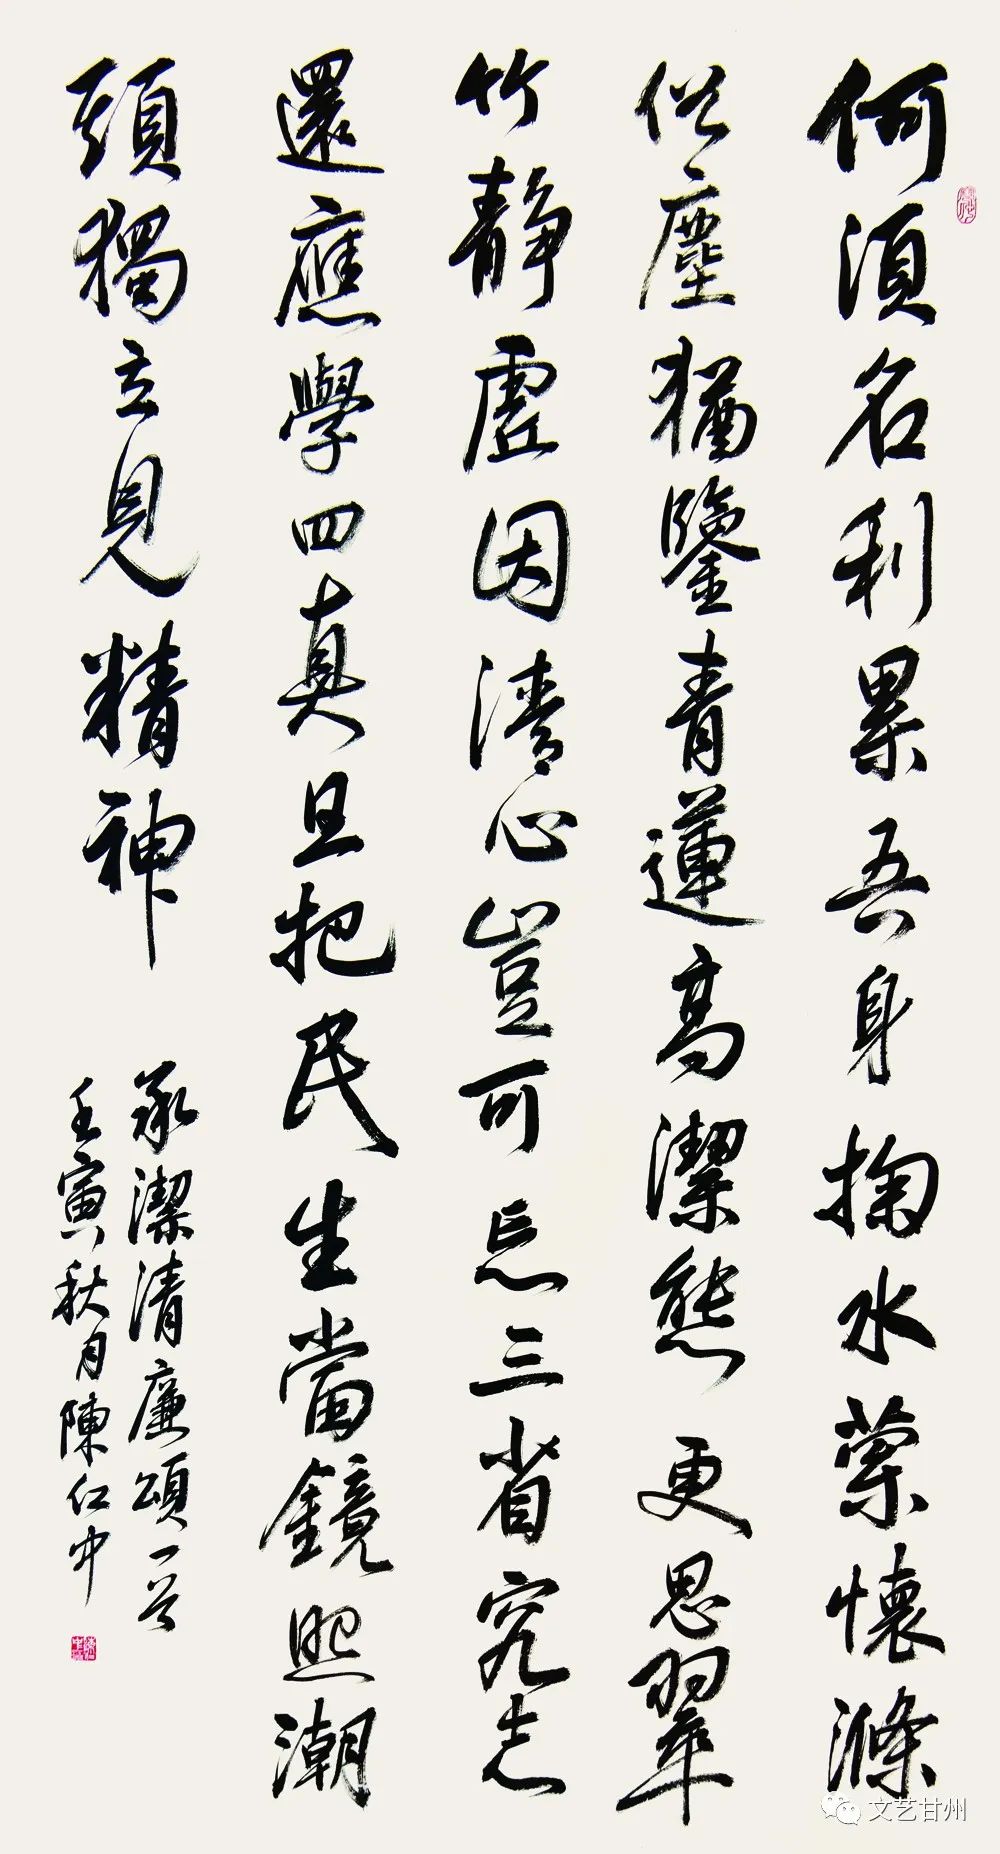 何須名利累吾身掬水萦懷滌
俗塵猶鑒青蓮高潔態更思翠
竹静虛因清心豈可忘三省究志
還應學四真且把民生當鏡照潮
頭獨立見精神
承潔清廉頌一首
壬寅秋月陳仁中
文艺甘州